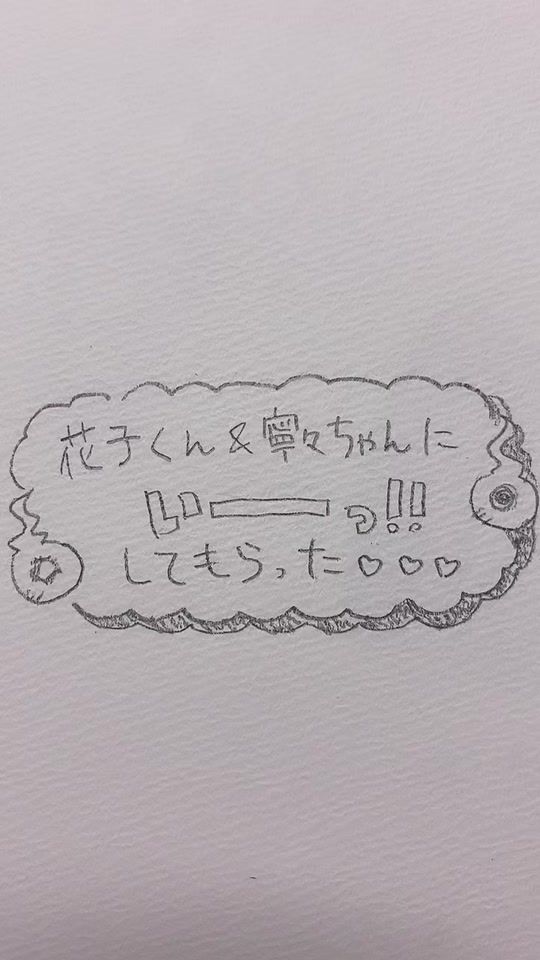 花子くん&寧々ちゃんに
いーっ!!
してもらった♡♡♡